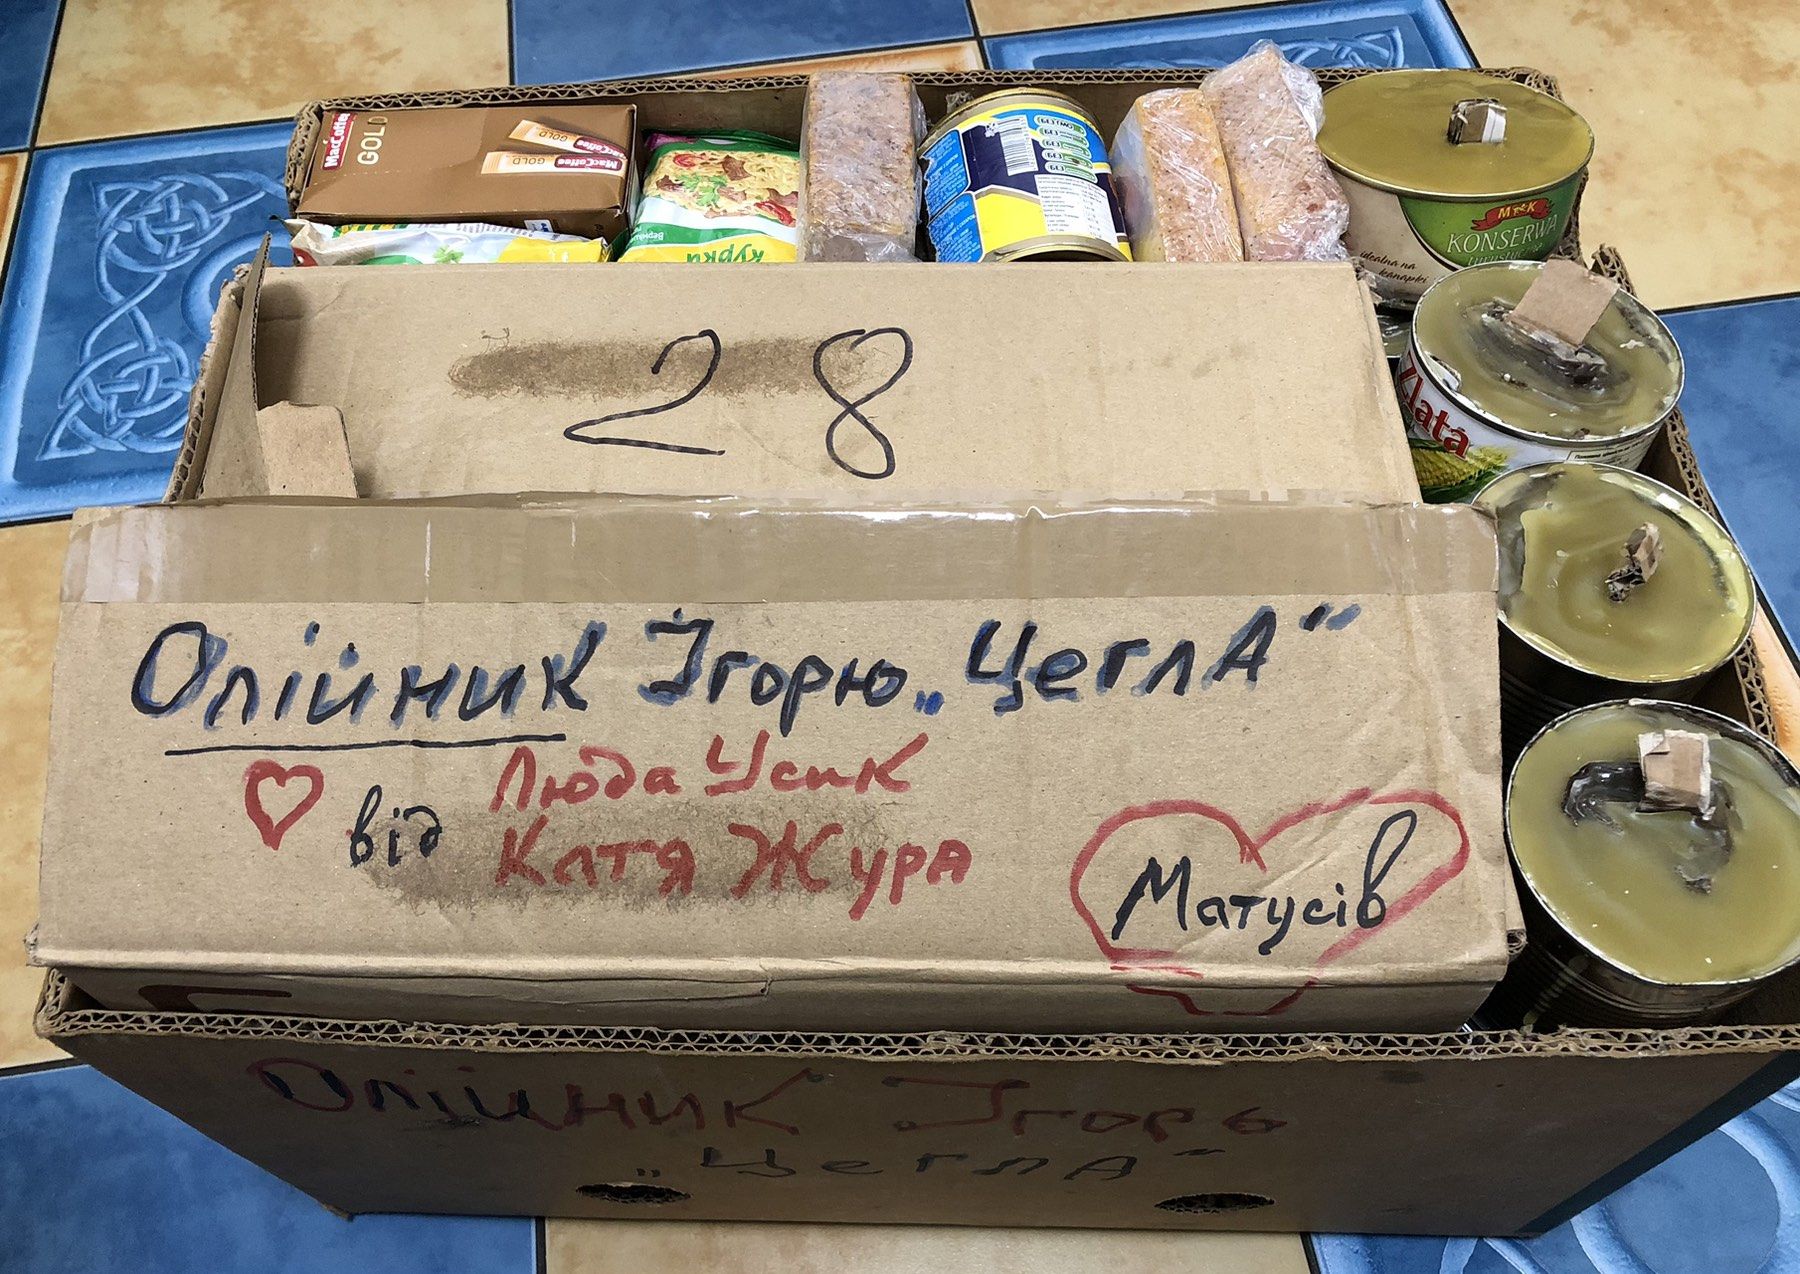 MacCoffee
GOLD
GOLD
MacCoffee
GOLD
MacCoffee
курки
БЕЗ ГМО
БЕЗ
БЕЗ
БЕЗ
БЕЗ
M&K
KONSERWA
idealna na
kanapki
Zlata
28
Олійник Ігорю „Цегла"
від Люда Усик
Катя Жура
Матусів
Олійник Ігорь
„Цегла"